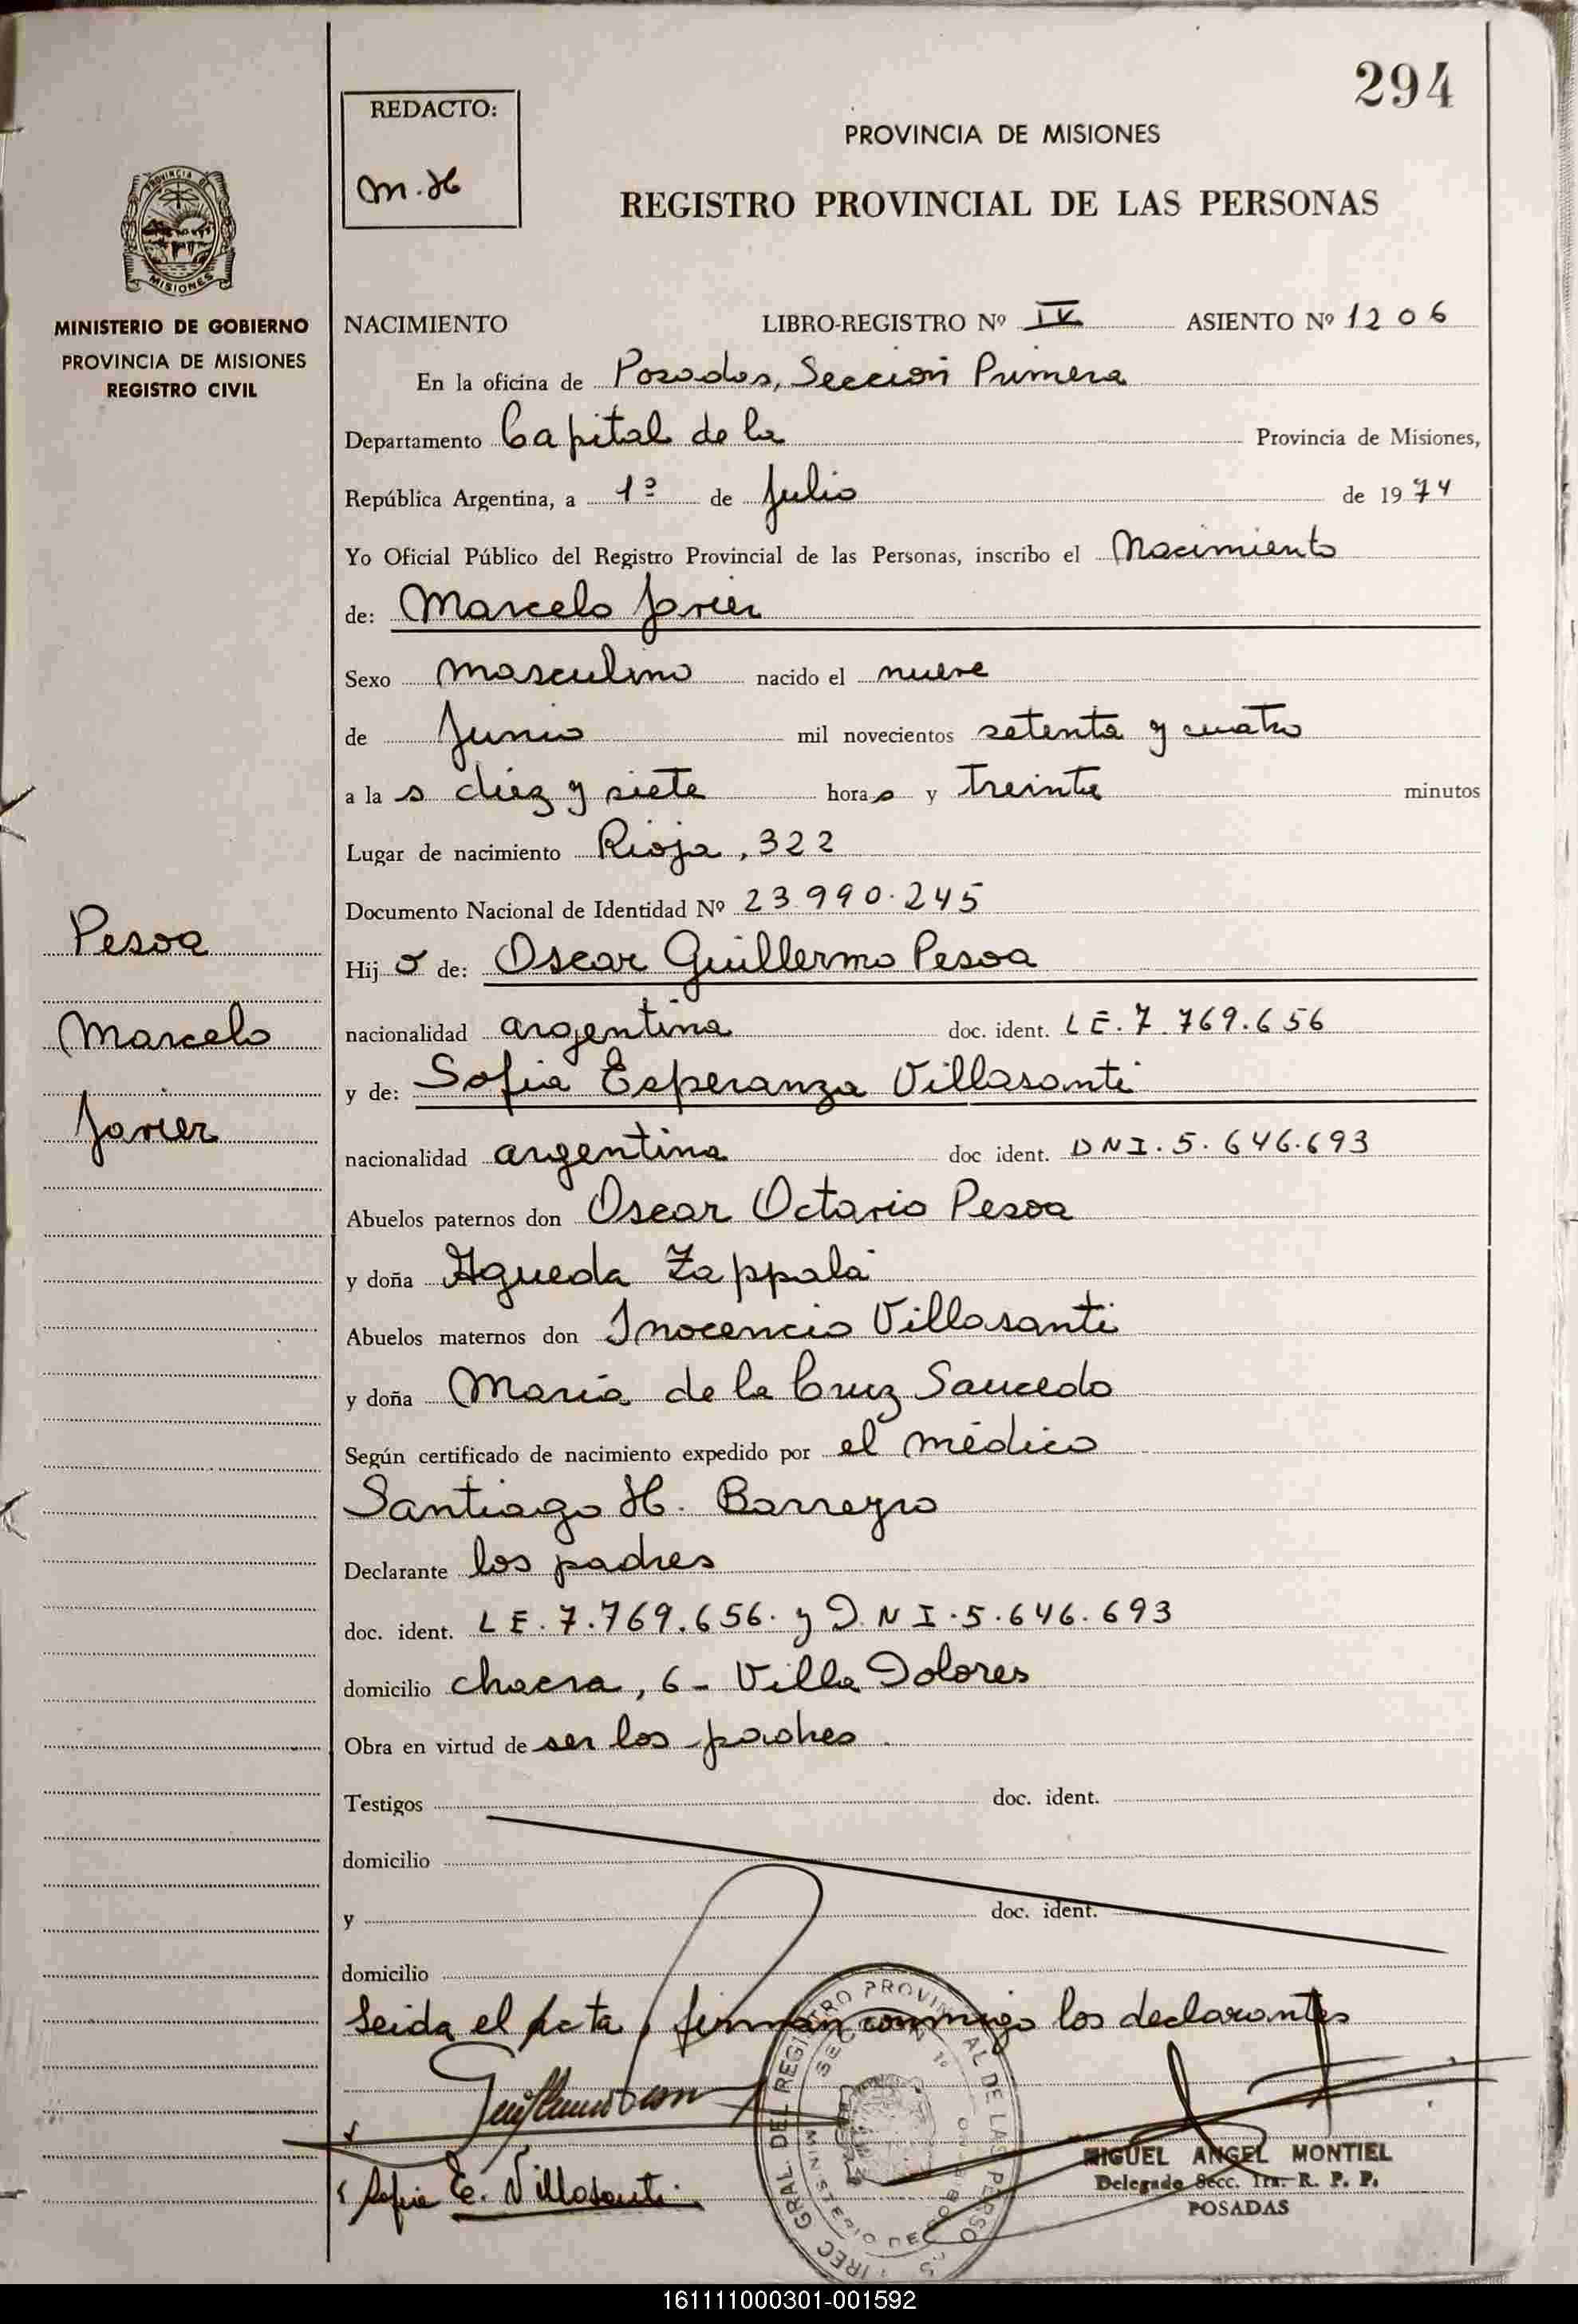 294
REDACTO:
M.H
PROVINCIA DE MISIONES
REGISTRO PROVINCIAL DE LAS PERSONAS
PROVINCIA DE
MISIONES
MINISTERIO DE GOBIERNO
PROVINCIA DE MISIONES
REGISTRO CIVIL
NACIMIENTO LIBRO-REGISTRO Nº IV ASIENTO Nº 1206
En la oficina de Posadas, Sección Primera
Departamento Capital de la Provincia de Misiones,
República Argentina, a 1º de Julio de 1974
Yo Oficial Público del Registro Provincial de las Personas, inscribo el Nacimiento
de: Marcelo Javier
Sexo masculino nacido el nueve
de Junio mil novecientos setenta y cuatro
a la s diez y siete hora s y treinta minutos
Lugar de nacimiento Rioja, 322
Documento Nacional de Identidad Nº 23.990.245
Hij o de: Oscar Guillermo Pesoa
nacionalidad argentina doc. ident. L E. 7.769.656
y de: Sofia Esperanza Villasanti
nacionalidad argentina doc ident. D N I. 5.646.693
Abuelos paternos don Oscar Octavio Pesoa
y doña Agueda Zappalá
Abuelos maternos don Inocencio Villasanti
y doña María de la Cruz Saucedo
Según certificado de nacimiento expedido por el médico
Santiago H. Barreyro
Declarante los padres
doc. ident. L E. 7.769.656. y D. N I. 5.646.693
domicilio chacra, 6 - Villa Dolores
Obra en virtud de ser los padres.
Testigos doc. ident.
domicilio
y doc. ident.
domicilio
Leida el acta, firman conmigo los declarantes
Pesoa
Marcelo
Javier
Sofia E. Villasanti
MIGUEL ANGEL MONTIEL
Delegado Secc. 1ra. R. P. P.
POSADAS
161111000301-001592